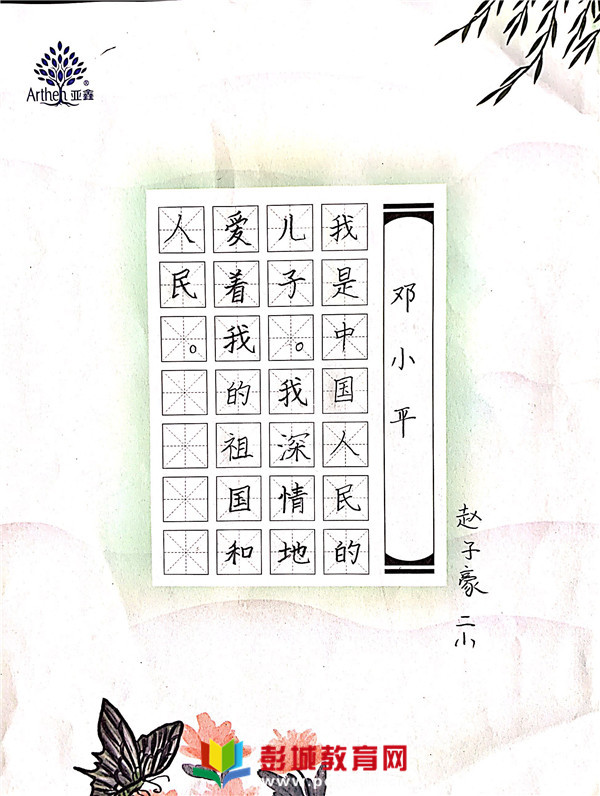 Arthen 亚鑫
®
邓小平
我是中国人民的
儿子。我深情地
爱着我的祖国和
人民。
赵子豪 二小
彭城教育网